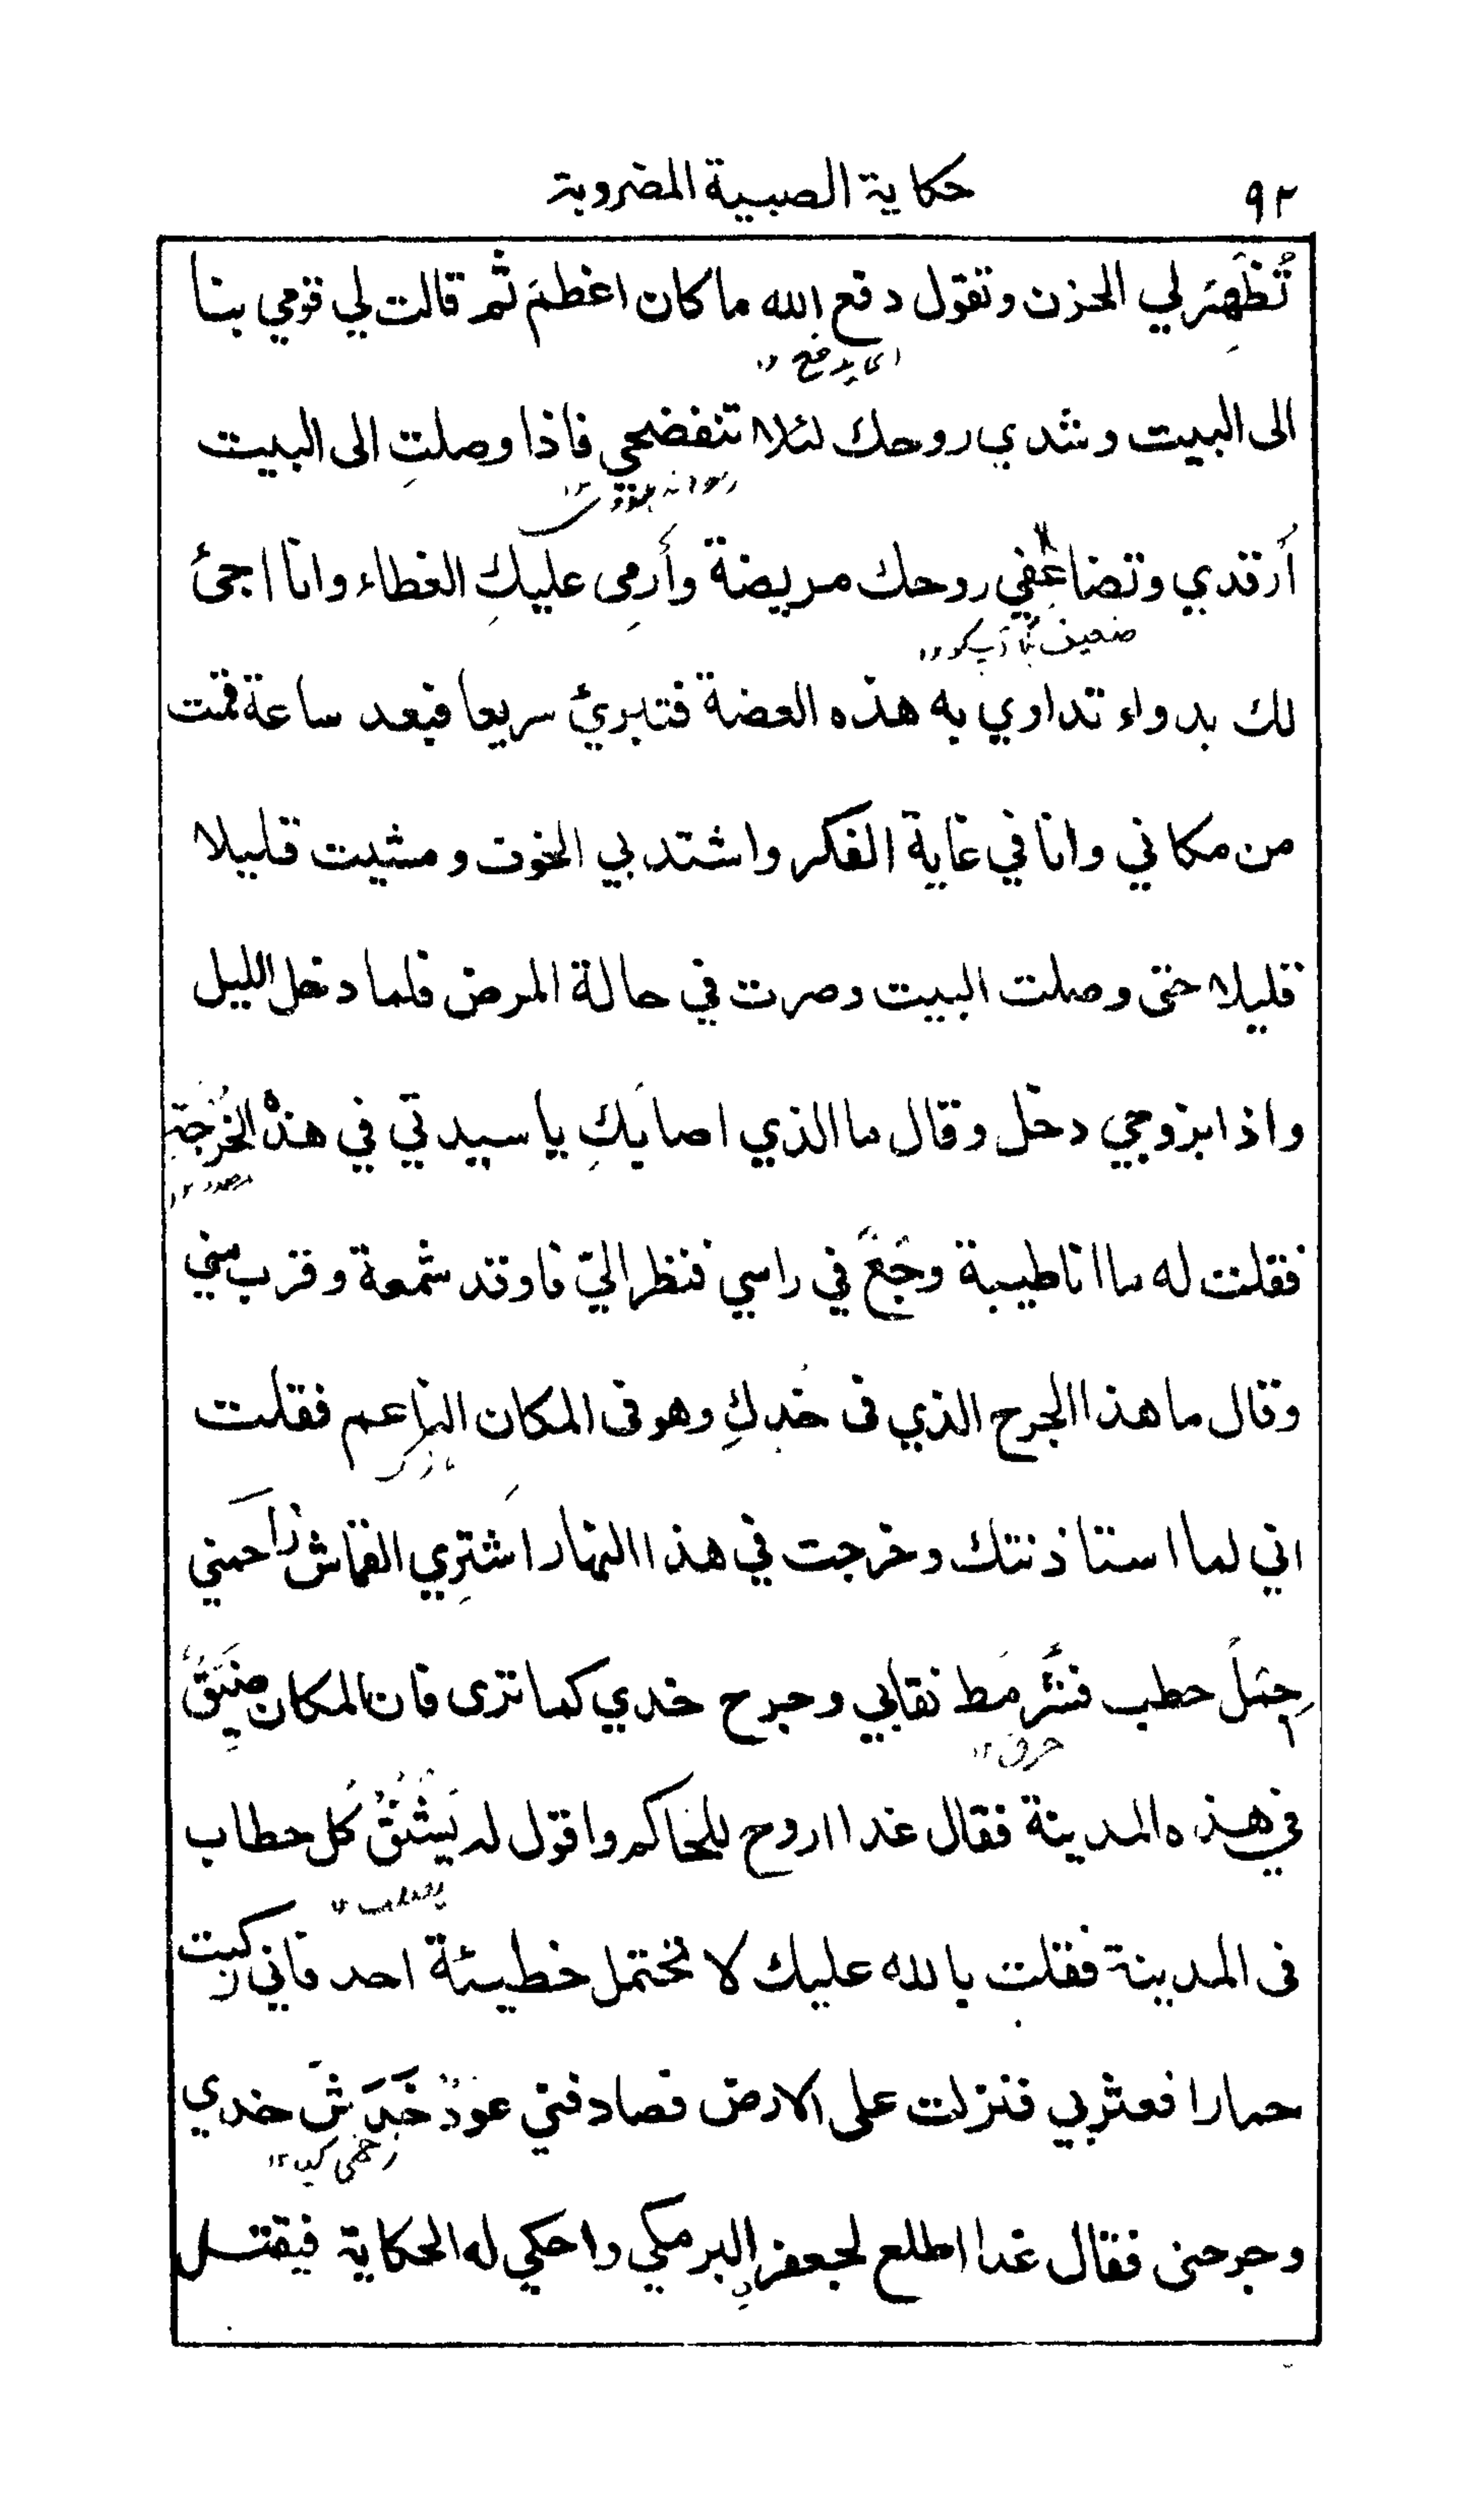 ٩٢ حكاية الصبية المضروبة
تُظْهِرَ لي الحزن وتقول دفع الله ما كان اعظمَ ثم قالت لي قومي بنا
اى يدفع
الى البيت وشدي روحك لئلا تنفضحي فاذا وصلتِ الى البيت
أرقدي وتضاعفي روحك مريضة وأَرمِى عليكِ الغطاء وانا اجئ
لك بدواء تداوي به هذه العضة فتبرئ سريعا فبعد ساعة قمت
من مكاني وانا في غاية الفكر واشتد بي الخوف ومشيت قليلا
قليلا حتى وصلت البيت وصرت في حالة المرض فلما دخل الليل
واذا بزوجي دخل وقال ما الذي اصابَكِ يا سيدتي في هذه الخُرْجَةِ
فقلت له ما انا طيبة وجَعٌ في راسي فنظر اليّ فاوقد شمعة وقرب مني
وقال ما هذا الجرح الذي فى خدِكِ وهو فى المكان الناعم فقلت
اني لما استاذنتك وخرجت في هذا النهار اَشترِي القماش زاحمني
جمَلُ حطب فشَرْمَط نقابي وجرح خدي كما ترى فان المكان ضَيِّقٌ
في هذه المدينة فقال غدا اروح للحاكم واقول له يَشْنُقُ كل حطاب
فى المدينة فقلت بالله عليك لا تحتمل خطيئة احد فاني ركبت
حمارا فعثر بي فنزلت على الارض فصادفني عودٌ خَدَشَ خدي
زخمى كيا
وجرحنى فقال غدا اطلع لجعفر البرمكي واحكي له الحكاية فيقتل